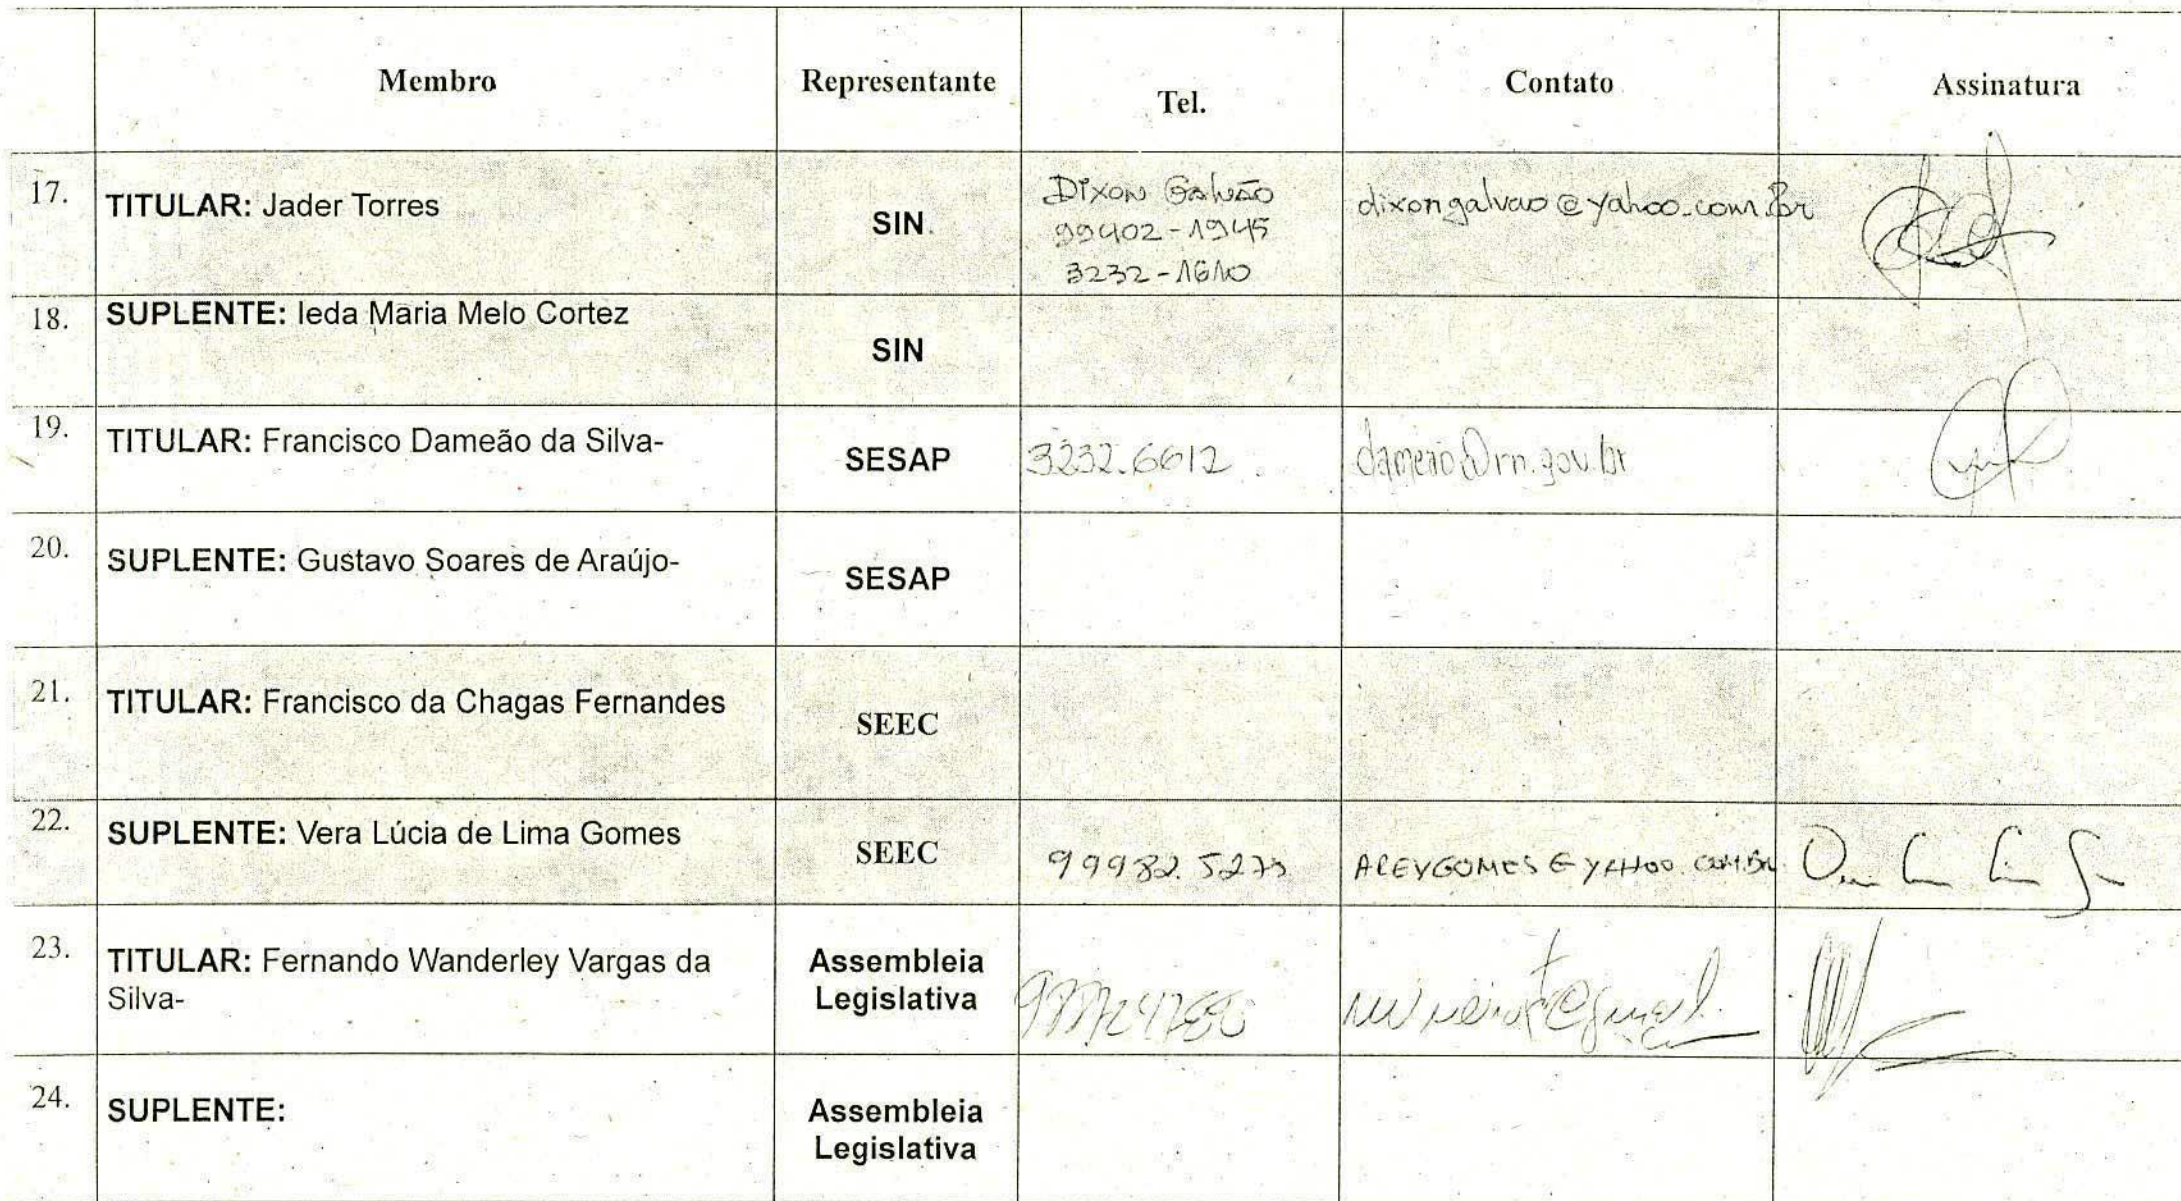 Membro Representante Tel. Contato Assinatura
17. TITULAR: Jader Torres SIN. Dixon Galvão dixongalvao@yahoo.com.br
99402-1945
3232-1610
18. SUPLENTE: Ieda Maria Melo Cortez SIN
19. TITULAR: Francisco Dameão da Silva- SESAP 3232.6612 dameao@rn.gov.br
20. SUPLENTE: Gustavo Soares de Araújo- SESAP
21. TITULAR: Francisco da Chagas Fernandes SEEC
22. SUPLENTE: Vera Lúcia de Lima Gomes SEEC 99982.5273 AREVGOMES@YAHOO.COM.BR
23. TITULAR: Fernando Wanderley Vargas da Assembleia
Silva- Legislativa
24. SUPLENTE: Assembleia
Legislativa